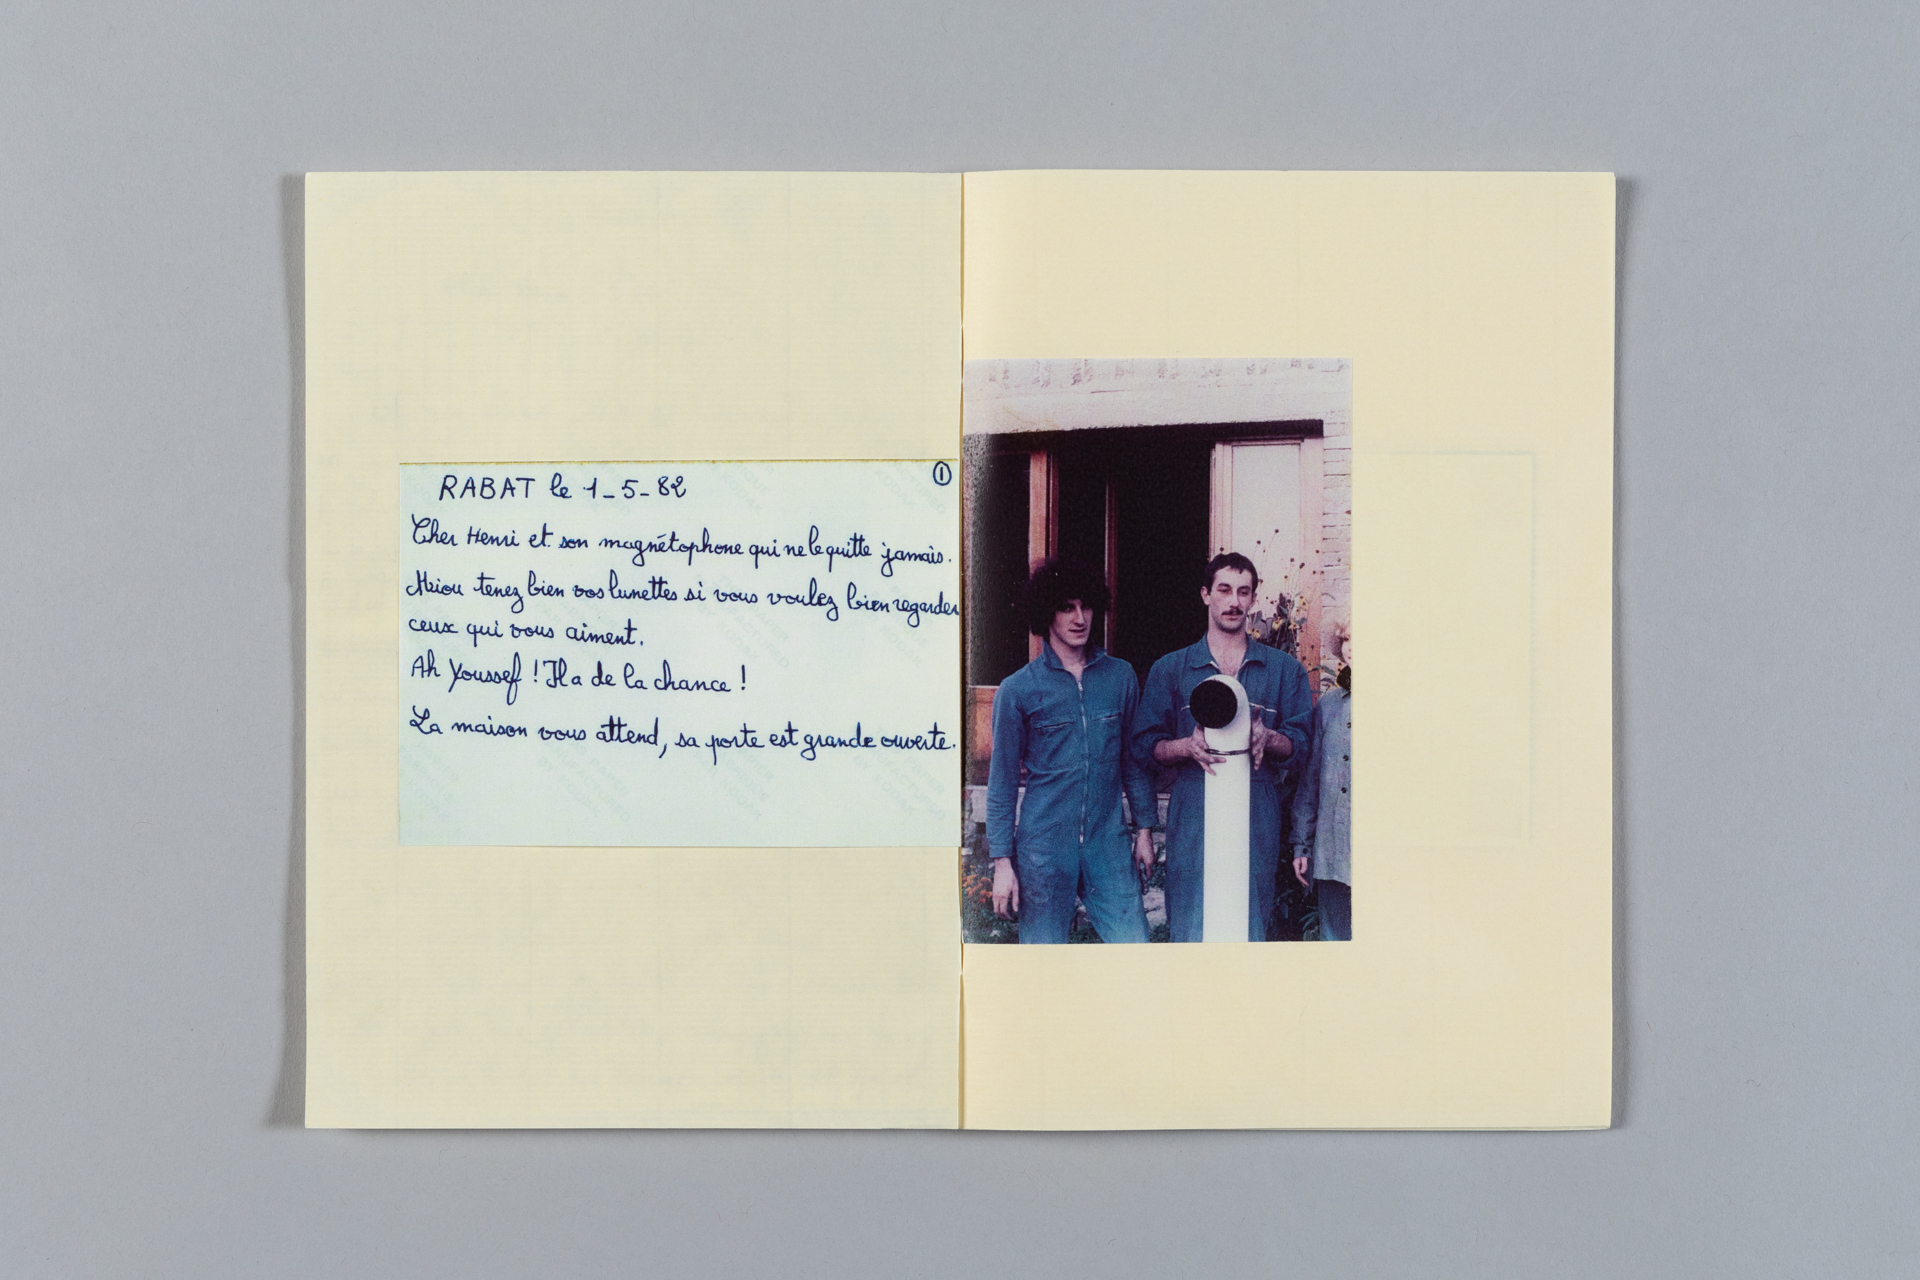 ①
RABAT le 1_5_82
Cher Henri et son magnétophone qui ne le quitte jamais.
tenez bien vos lunettes si vous voulez bien regarder
ceux qui vous aiment.
Ah Youssef ! Il a de la chance !
La maison vous attend, sa porte est grande ouverte.